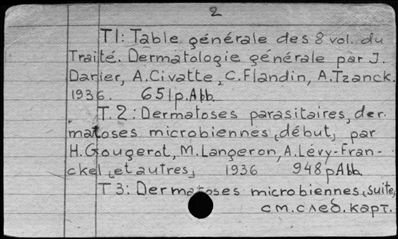 2
T1: Table générale des 8 vol. du
Traité. Dermatologie générale par J.
Darier, A. Civatte, C. Flandin, A. Tzanck.
1936. 651p. Abb.
T. 2: Dermatoses parasitaires, der-
matoses microbiennes (début), par
H. Gougerot, M. Langeron, A. Lévy-Fran-
ckel (et autres) 1936 948p Abb.
T 3: Dermatoses microbiennes (suite,
см. след. карт.